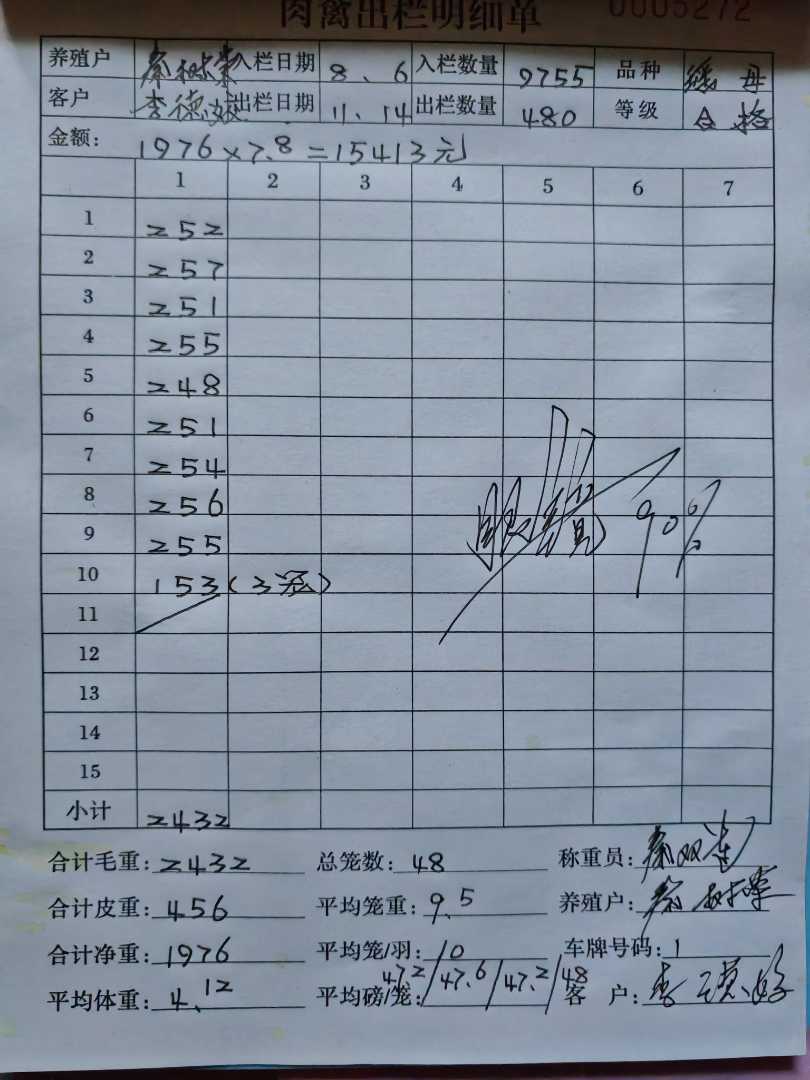 肉禽出栏明细单 0005272
养殖户 秦树荣 入栏日期 8、6 入栏数量 9755 品种
客户 李德 出栏日期 11、14 出栏数量 480 等级 合格
金额: 1976×7.8=15413元
1 2 3 4 5 6 7
1 252
2 257
3 251
4 255
5 248
6 251
7 254
8 256
9 255
10 153(3笼)
11
12
13
14
15
90%
小计 2432
合计毛重: 2432 总笼数: 48 称重员: 秦双莲
合计皮重: 456 平均笼重: 9.5 养殖户: 秦树荣
合计净重: 1976 平均笼/羽: 10 车牌号码: 1
平均体重: 4.12 平均磅/笼: 47.2/47.6/47.2/48 客户: 李